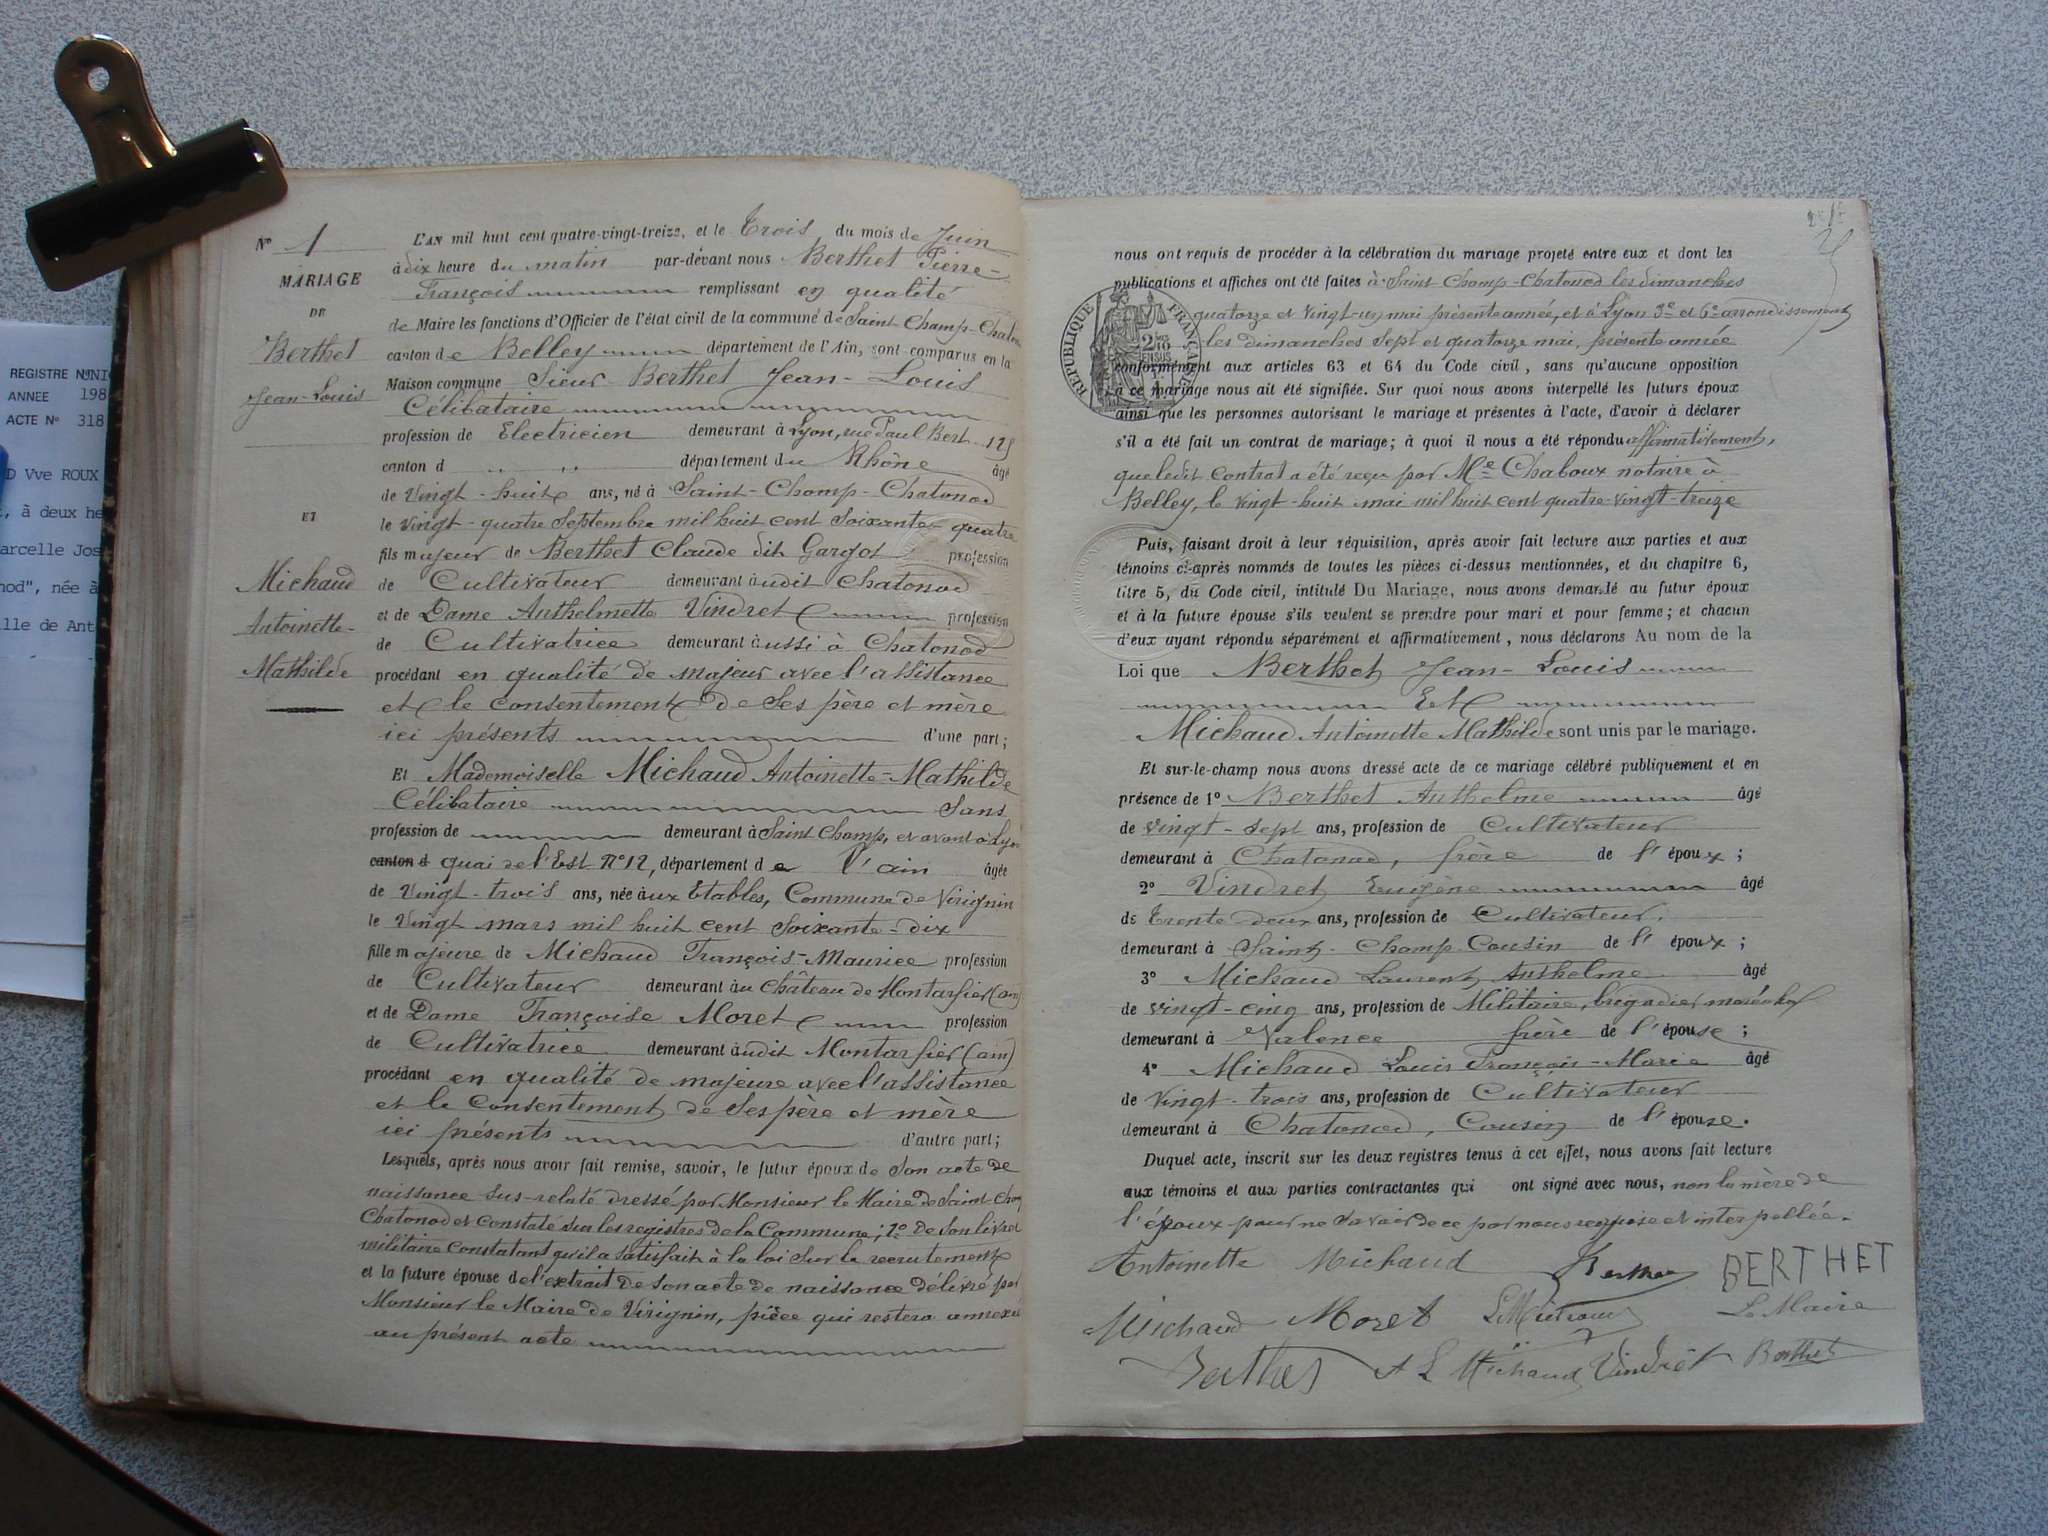 REGISTRE N°UNIC
ANNEE 198
ACTE N° 318
D Vve ROUX
, à deux he
arcelle Jos
nod", née à
lle de Ant
N° 1
MARIAGE
DE
Berthet
Jean-Louis
ET
Michaud
Antoinette-
Mathilde
L'AN mil huit cent quatre-vingt-treize, et le Trois du mois de Juin
à dix heure du matin par-devant nous Berthet Pierre-
François remplissant en qualité
de Maire les fonctions d'Officier de l'état civil de la commune de Saint-Champ-Chaton
canton de Belley département de l'Ain, sont comparus en la
Maison commune Sieur Berthet Jean-Louis
Célibataire
profession de Electricien demeurant à Lyon, rue Paul Bert 125
canton d département du Rhône âgé
de Vingt-huit ans, né à Saint-Champ-Chatonod
le Vingt-quatre Septembre mil huit cent Soixante-quatre
fils majeur de Berthet Claude dit Gargot profession
de Cultivateur demeurant audit Chatonod
et de Dame Anthelmette Vindret profession
de Cultivatrice demeurant aussi à Chatonod
procédant en qualité de majeur avec l'assistance
et le consentement de Ses père et mère
ici présents d'une part;
Et Mademoiselle Michaud Antoinette-Mathilde
Célibataire Sans
profession de demeurant à Saint Champ, et avant à Lyon
canton d quai de l'Est N°12, département de l'ain âgée
de Vingt-trois ans, née aux Etables, Commune de Virignin
le Vingt mars mil huit cent Soixante-dix
fille majeure de Michaud François-Maurice profession
de Cultivateur demeurant au Château de Montarfier (ain)
et de Dame Françoise Moret profession
de Cultivatrice demeurant audit Montarfier (ain)
procédant en qualité de majeure avec l'assistance
et le Consentement de Ses père et mère
ici présents d'autre part;
Lesquels, après nous avoir fait remise, savoir, le futur époux de Son acte de
naissance Sus-relaté dressé par Monsieur le Maire de Saint-Champ
Chatonod et Constaté sur les registres de la Commune; 2° de Son livret
militaire Constatant qu'il a satisfait à la loi Sur le recrutement
et la future épouse de l'extrait de son acte de naissance délivré par
Monsieur le Maire de Virignin, pièce qui restera annexée
au présent acte
nous ont requis de procéder à la célébration du mariage projeté entre eux et dont les
publications et affiches ont été faites à Saint Champ-Chatonod les dimanches
quatorze et Vingt-un mai présente année, et à Lyon 3e et 6e arrondissements
les dimanches Sept et quatorze mai, présente année
conformément aux articles 63 et 64 du Code civil, sans qu'aucune opposition
à ce mariage nous ait été signifiée. Sur quoi nous avons interpellé les futurs époux
ainsi que les personnes autorisant le mariage et présentes à l'acte, d'avoir à déclarer
s'il a été fait un contrat de mariage; à quoi il nous a été répondu affirmativement,
que ledit Contrat a été reçu par Me Chaboux notaire à
Belley, le vingt-huit mai mil huit cent quatre-vingt-treize
RÉPUBLIQUE FRANÇAISE
Puis, faisant droit à leur réquisition, après avoir fait lecture aux parties et aux
témoins ci-après nommés de toutes les pièces ci-dessus mentionnées, et du chapitre 6,
titre 5, du Code civil, intitulé Du Mariage, nous avons demandé au futur époux
et à la future épouse s'ils veulent se prendre pour mari et pour femme; et chacun
d'eux ayant répondu séparément et affirmativement, nous déclarons Au nom de la
Loi que Berthet Jean-Louis
Et
Michaud Antoinette Mathilde sont unis par le mariage.
Et sur-le-champ nous avons dressé acte de ce mariage célébré publiquement et en
présence de 1° Berthet Anthelme âgé
de vingt-sept ans, profession de Cultivateur
demeurant à Chatonod, frère de l'époux;
2° Vindret Eugène âgé
de Trente deux ans, profession de Cultivateur,
demeurant à Saint-Champ Cousin de l'époux;
3° Michaud Laurent Anthelme âgé
de vingt-cinq ans, profession de Militaire, brigadier maréchal
demeurant à Valence frère de l'épouse;
4° Michaud Louis François-Marie âgé
de Vingt-trois ans, profession de Cultivateur
demeurant à Chatonod, Cousin de l'épouse.
Duquel acte, inscrit sur les deux registres tenus à cet effet, nous avons fait lecture
aux témoins et aux parties contractantes qui ont signé avec nous, non la mère de
l'époux pour ne savoir de ce par nous requise et interpellée.
Antoinette Michaud Berthet BERTHET
Michaud Moret Le Maire
Berthet A L Michaud Vindrêt Berthet